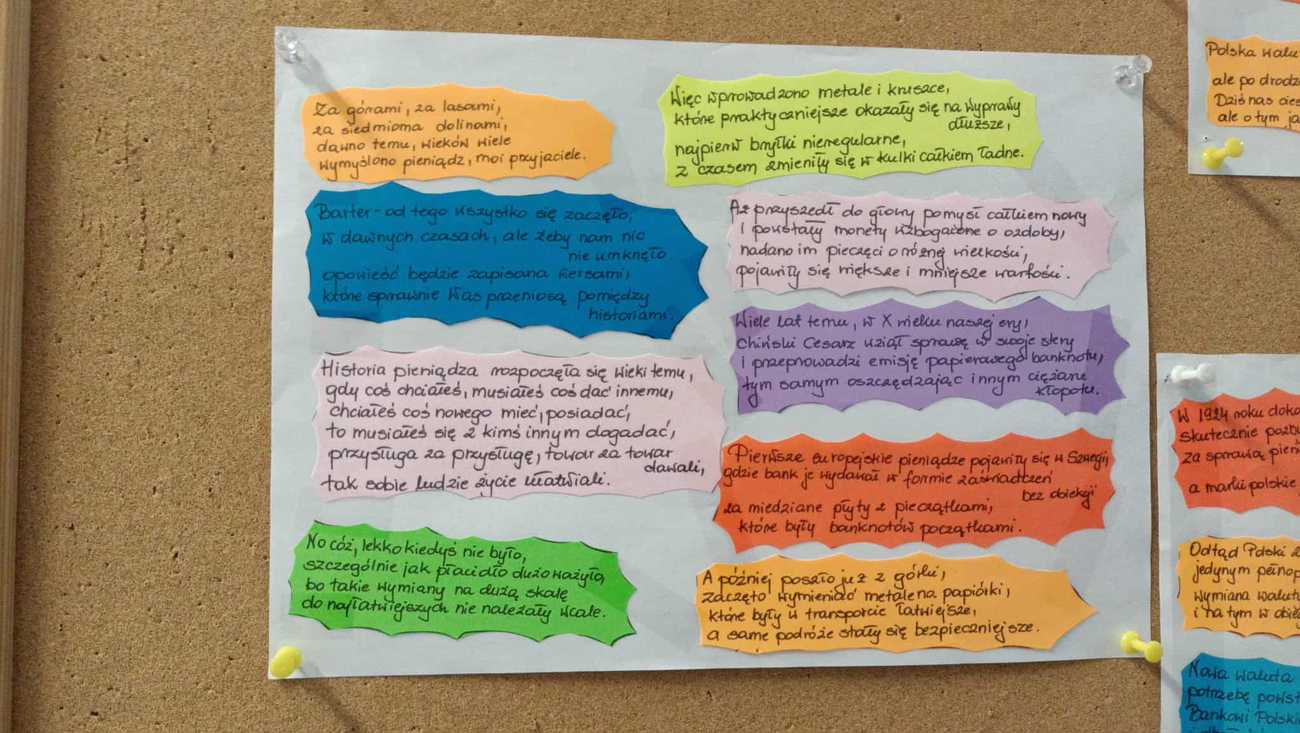 Za górami, za lasami,
za siedmioma dolinami,
dawno temu, wieków wiele
wymyślono pieniądz, moi przyjaciele.
Barter - od tego wszystko się zaczęło,
w dawnych czasach, ale żeby nam nic
nie umknęło
opowieść będzie zapisana wersami,
które sprawnie Was przeniosą pomiędzy
historiami.
Historia pieniądza rozpoczęła się wieki temu,
gdy coś chciałeś, musiałeś coś dać innemu,
chciałeś coś nowego mieć, posiadać,
to musiałeś się z kimś innym dogadać,
przysługa za przysługę, towar za towar
dawali,
tak sobie ludzie życie ułatwiali.
No cóż, lekko kiedyś nie było,
szczególnie jak płacidło dużo ważyło,
bo takie wymiany na dużą skalę
do najłatwiejszych nie należały wcale.
Więc wprowadzono metale i kruszce,
które praktyczniejsze okazały się na wyprawy
dłuższe,
najpierw bryłki nieregularne,
z czasem zmieniły się w kulki całkiem ładne.
Aż przyszedł do głowy pomysł całkiem nowy
i powstały monety wzbogacone o ozdoby,
nadano im pieczęci o różnej wielkości,
pojawiły się większe i mniejsze wartości.
Wiele lat temu, w X wieku naszej ery,
chiński Cesarz wziął sprawę w swoje stery
i przeprowadzi emisję papierowego banknotu,
tym samym oszczędzając innym ciężaru
kłopotu.
Pierwsze europejskie pieniądze pojawiły się w Szwecji,
gdzie bank je wydawał w formie zaświadczeń
bez obiekcji
za miedziane płyty z pieczątkami,
które były banknotów początkami.
A później poszło już z górki,
zaczęto wymieniać metale na papiórki,
które były w transporcie łatwiejsze,
a same podróże stały się bezpieczniejsze.
Polska
ale po
Dziś nas
ale o tym
W 1924 roku
skutecznie
za sprawą
a marki polskie
Odtąd Polski
jedynym
wymiana
i na tym w
Nowa waluta
potrzebę
Bankowi